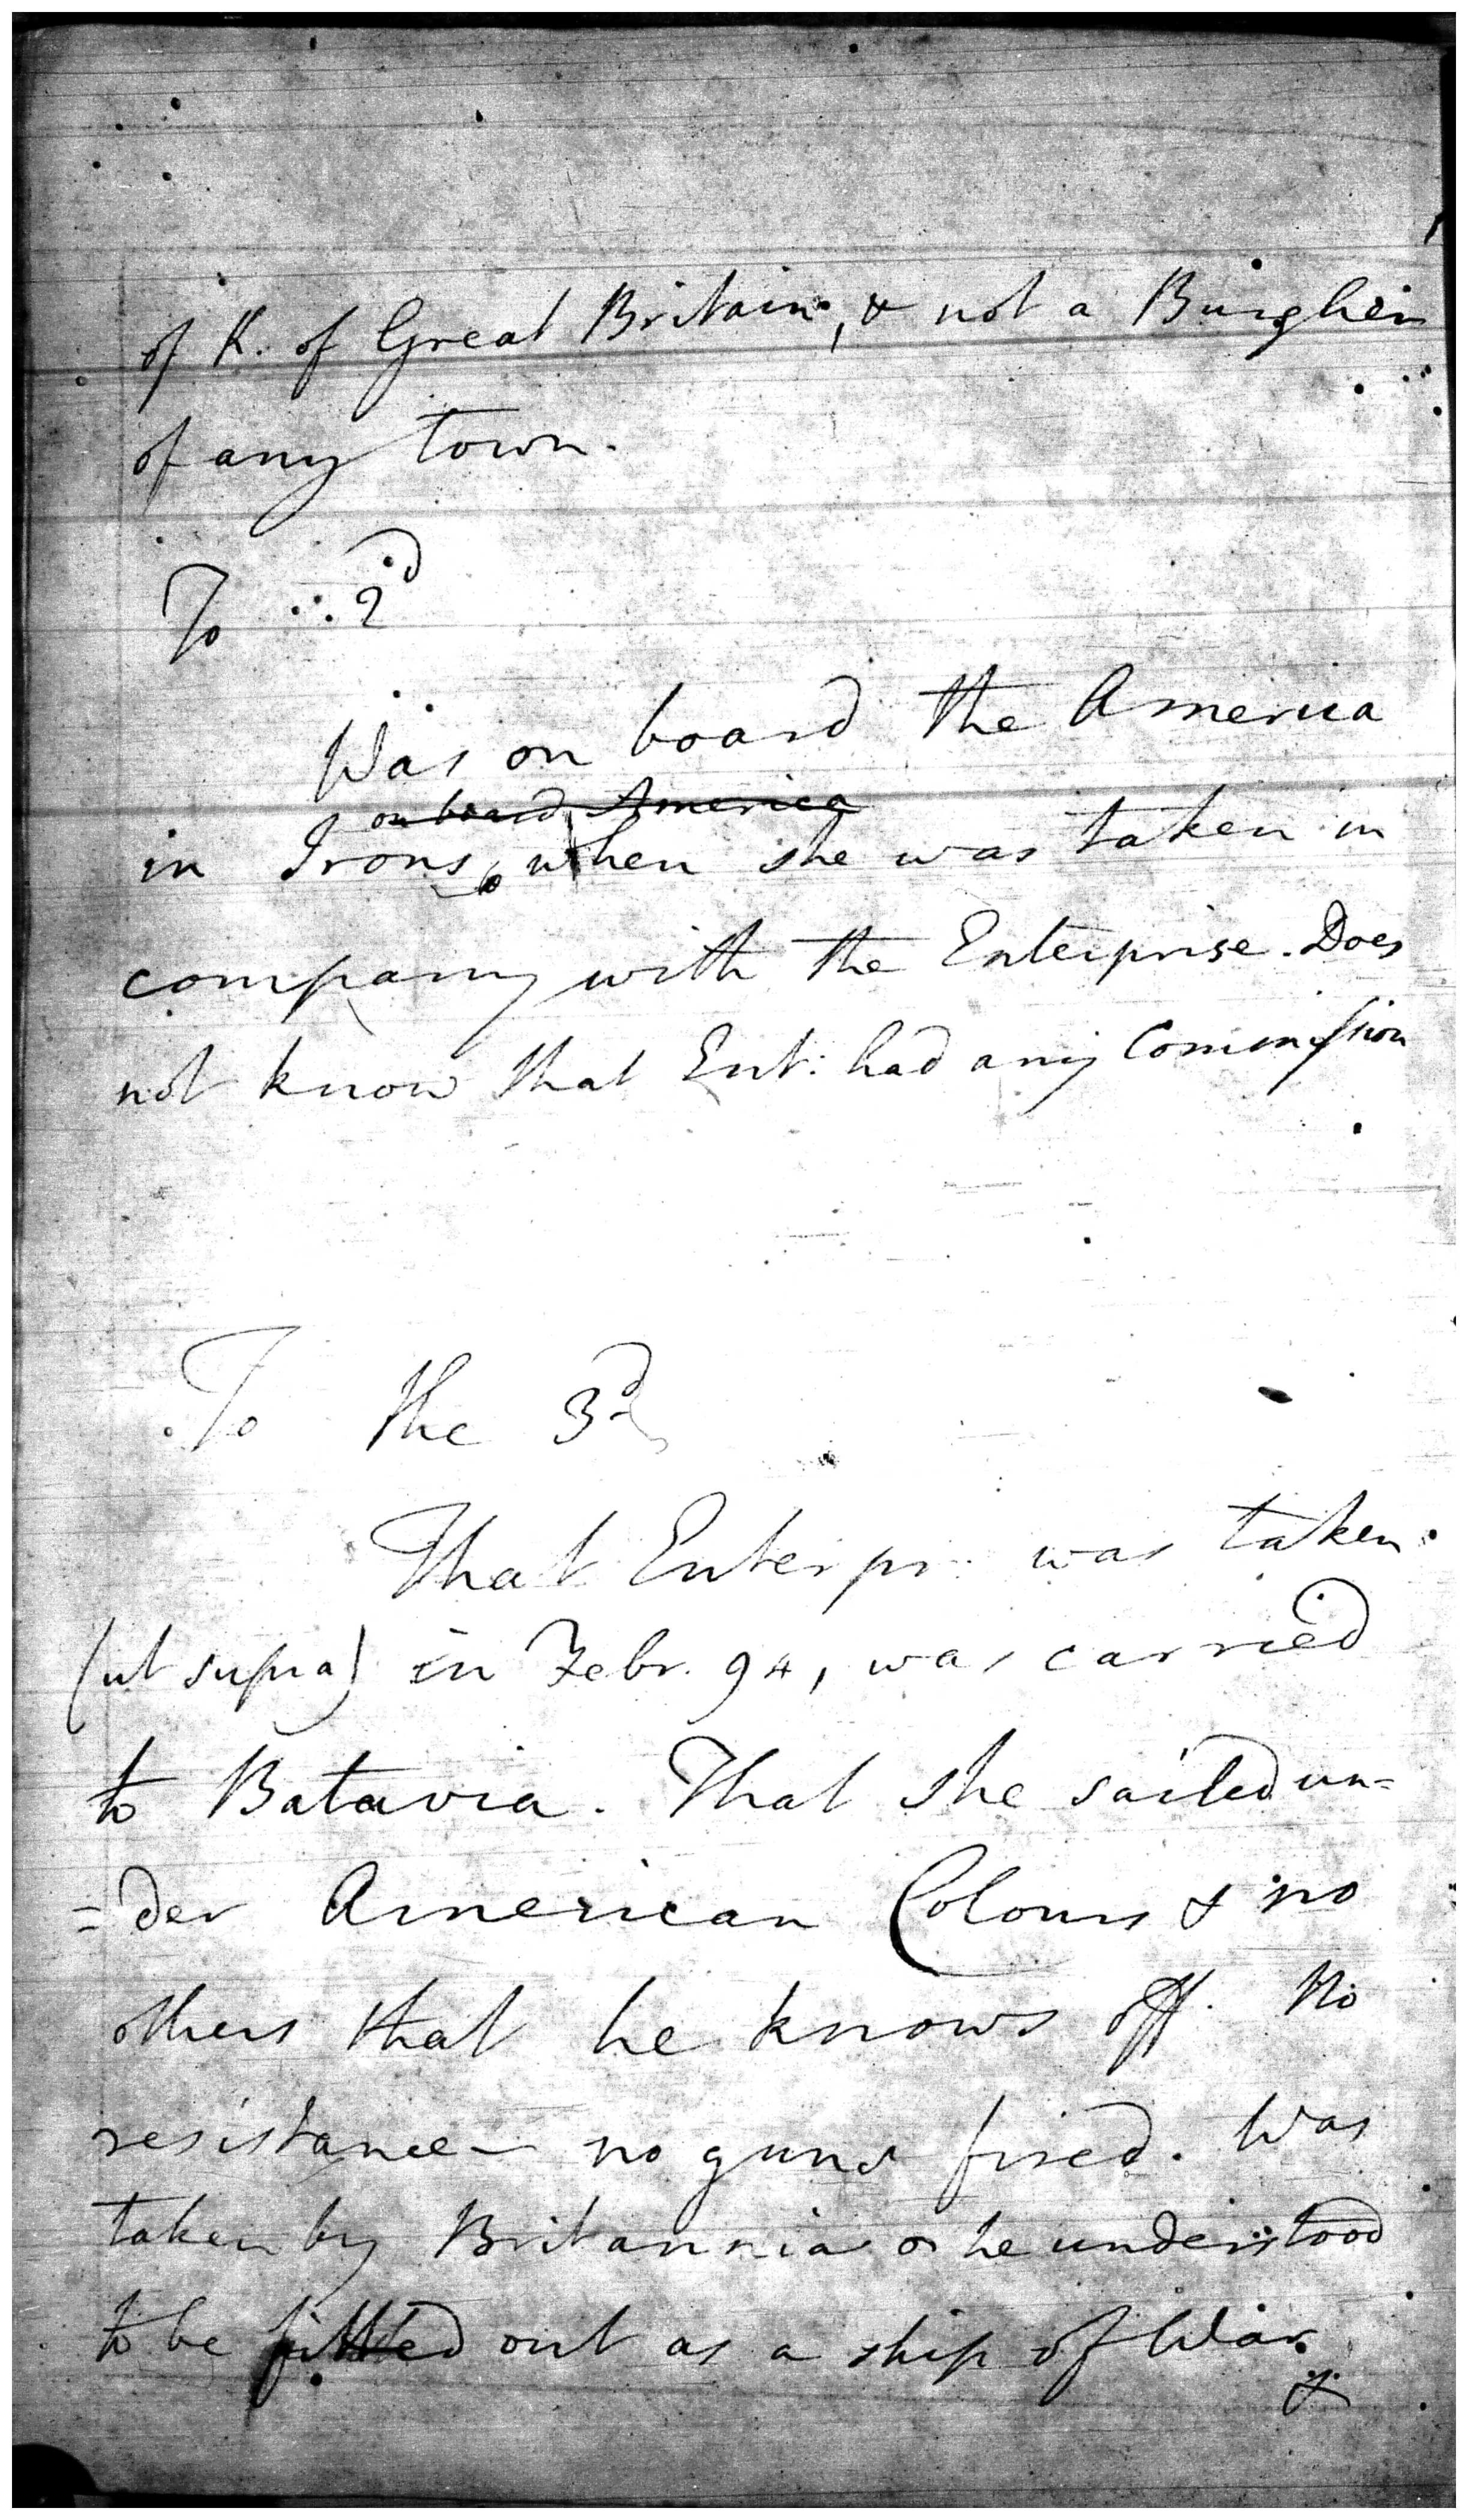 of K. of Great Britain, & not a Burgher
of any town.
To 2d
Was on board the America
on board America
in Irons, when she was taken in
company with the Enterprise. Does
not know that Ent: had any Commission
To the 3d
That Enterpr. was taken
(ut supra) in Febr. 94, was carried
to Batavia. That she sailed un=
=der American Colours & no
others that he knows off. No
resistance - no guns fired. Was
taken by Britannia he understood
to be fitted out as a ship of War
&